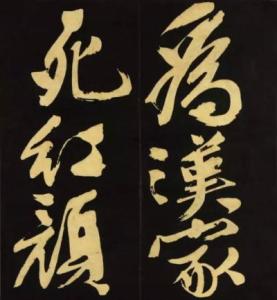 為漢家
死紅顏